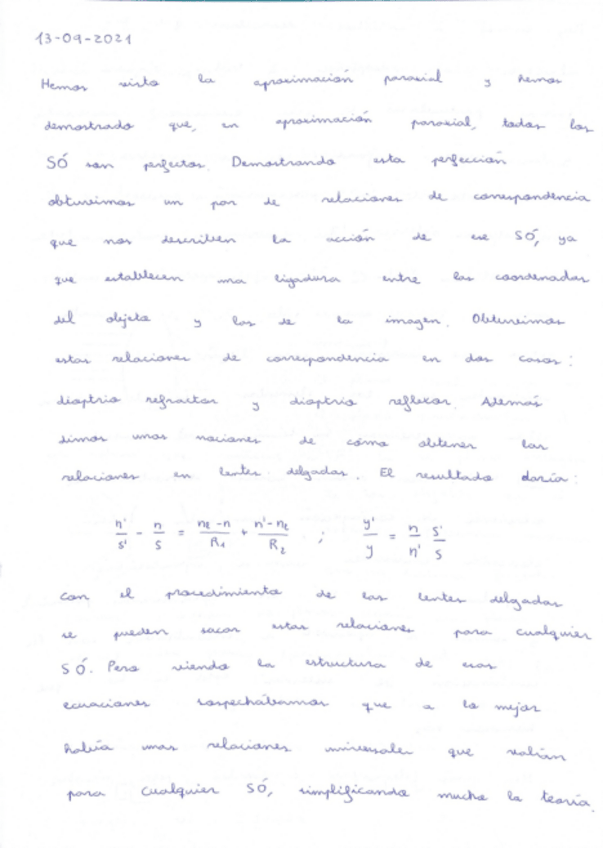 13-09-2021
Hemos visto la aproximación paraxial y hemos
demostrado que, en aproximación paraxial, todos los
SÓ son perfectos. Demostrando esta perfección
obtuvimos un par de relaciones de correspondencia
que nos describen la acción de ese SÓ, ya
que establecen una ligadura entre las coordenadas
del objeto y las de la imagen. Obtuvimos
estas relaciones de correspondencia en dos casos:
dioptrio refractor y dioptrio reflexor. Además
dimos unas nociones de cómo obtener las
relaciones en lentes delgadas. El resultado daría:
n'/s' - n/s = (nℓ-n)/R₁ + (n'-nℓ)/R₂ ; y'/y = n/n' s'/s
Con el procedimiento de las lentes delgadas
se pueden sacar estas relaciones para cualquier
SÓ. Pero viendo la estructura de esas
ecuaciones sospechábamos que a lo mejor
habría unas relaciones universales que valían
para cualquier SÓ, simplificando mucho la teoría.